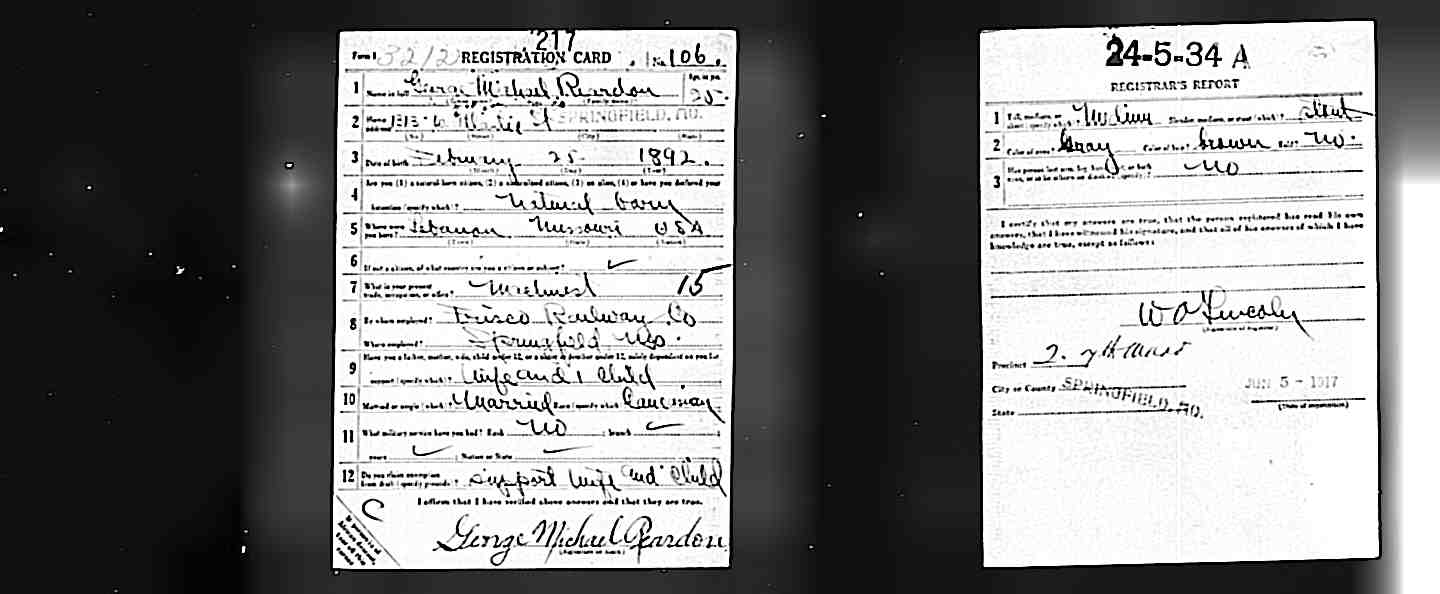 217
Form 1 3212 REGISTRATION CARD No 106.
1 Name in full George Michael Reardon Age in yrs. 25
(Family name)
2 Home address 1313 W SPRINGFIELD, MO.
(No.) (Street) (City) (State)
3 Date of birth February 25 1892.
(Month) (Day) (Year)
Are you (1) a natural-born citizen, (2) a naturalized citizen, (3) an alien, (4) or have you declared your
4 intention (specify which)? Natural born
5 Where were you born? Lebanon Missouri USA
(Town) (State) (Nation)
6 If not a citizen, of what country are you a citizen or subject? ✓
7 What is your present trade, occupation, or office? Machinist 15
8 By whom employed? Frisco Railway Co
Where employed? Springfield Mo.
Have you a father, mother, wife, child under 12, or a sister or brother under 12, solely dependent on you for
9 support (specify which)? Wife and 1 Child
10 Married or single (which)? Married Race (specify which)? Caucasian
11 What military service have you had? Rank No ; branch ✓
years ✓ ; Nation or State
12 Do you claim exemption from draft (specify grounds)? Support Wife and Child
I affirm that I have verified above answers and that they are true.
C
George Michael Reardon
(Signature or mark)
24-5-34 A
REGISTRAR'S REPORT
1 Tall, medium, or short (specify which)? Medium Slender, medium, or stout (which)? Stout
2 Color of eyes? Gray Color of hair? brown Bald? No.
3 Has person lost arm, leg, hand, foot, or both eyes, or is he otherwise disabled (specify)? No
I certify that my answers are true, that the person registered has read his own
answers, that I have witnessed his signature, and that all of his answers of which I have
knowledge are true, except as follows:
W O Lincoln
(Signature of registrar)
Precinct 2. 7th Ward
City or County SPRINGFIELD, MO.
State
JUN 5 - 1917
(Date of registration)